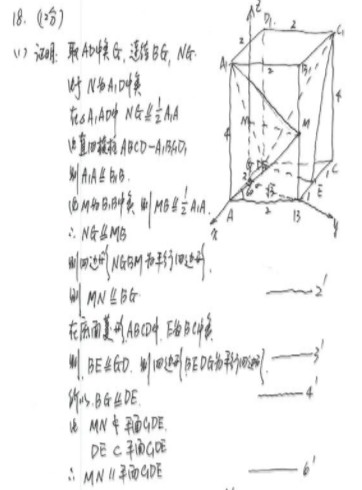 18. (12分)
(1) 证明: 取AD中点G, 连接BG, NG.
由于N为A₁D中点
在△A₁AD中 NG ≚ ½A₁A
由直四棱柱ABCD-A₁B₁C₁D₁
则A₁A ≚ B₁B.
由M为B₁B中点 则 MB ≚ ½A₁A.
∴ NG ≚ MB
则四边形NGBM为平行四边形.
则 MN ≚ BG —— 2'
在底面菱形ABCD中, E为BC中点
则 BE ≚ GD. 则四边形BEDG为平行四边形. —— 3'
所以 BG ≚ DE. —— 4'
由 MN ⊄ 平面C₁DE
DE ⊂ 平面C₁DE
∴ MN // 平面C₁DE —— 6'
z
D₁
2
C₁
A₁
2
B₁
4
N
M
4
4
G
D
C
60°
√3
1
E
A
2
B
1
x
y